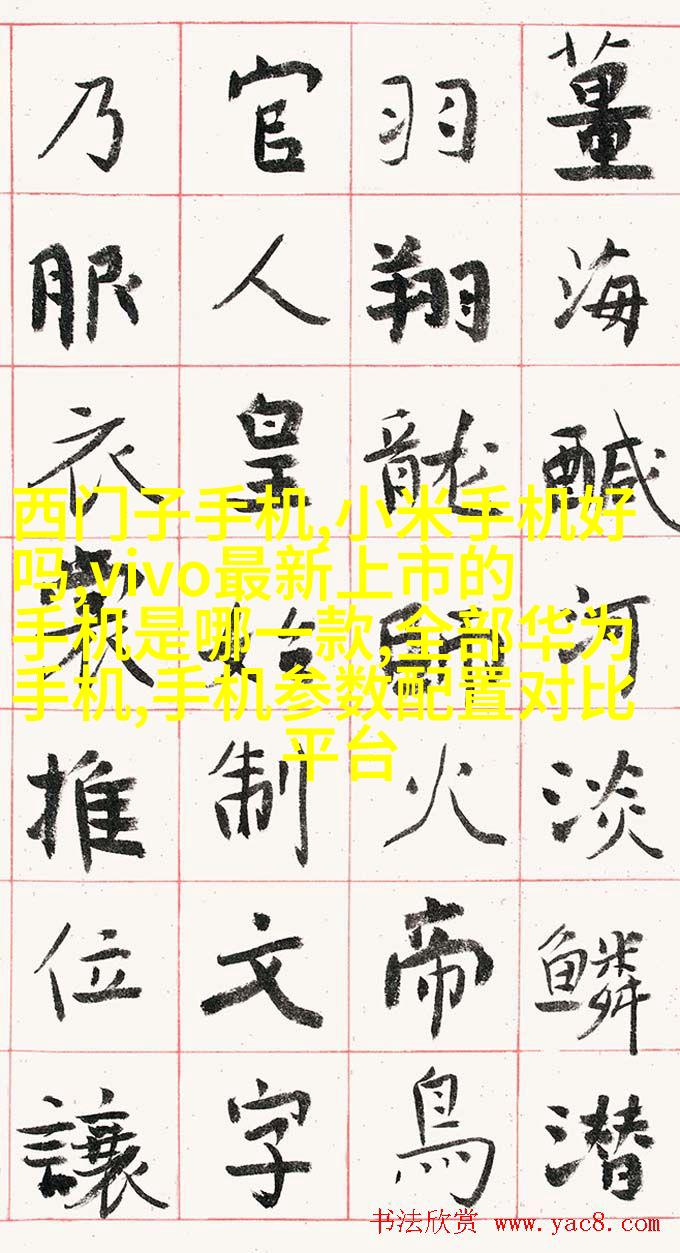 薑海醎河淡鳞潜
羽翔龍師火帝鳥
官人皇始制文字
乃服衣裳推位讓
西门子手机,小米手机好
吗,vivo最新上市的
手机是哪一款,全部华为
手机,手机参数配置对比
平台
书法欣赏 www.yac8.com